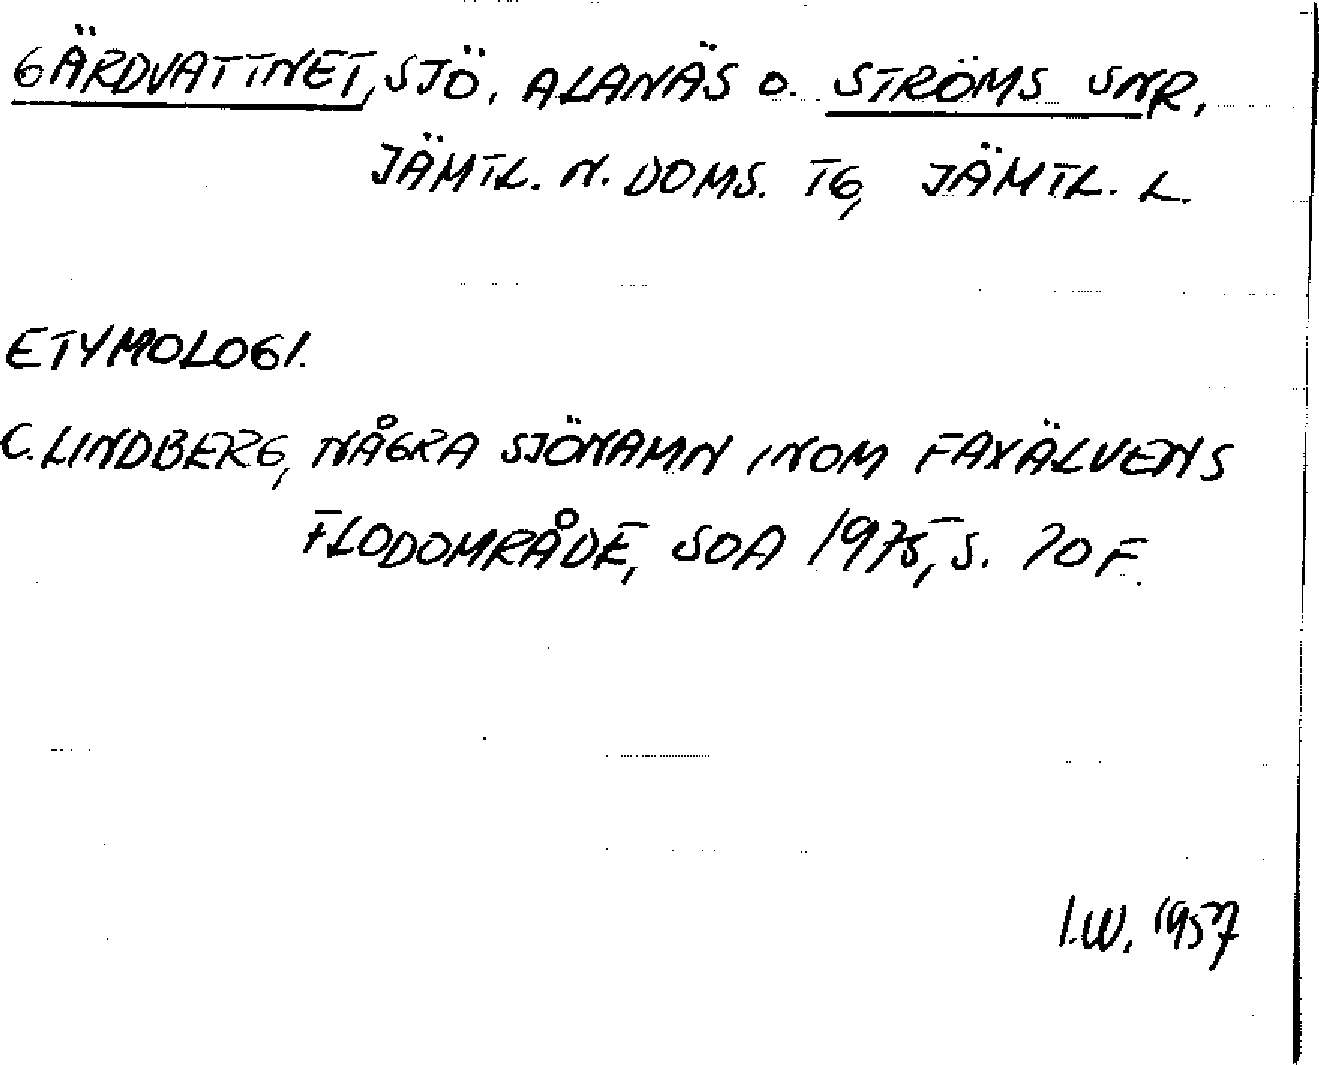 GÄRDVATTNET, SJÖ, ALANÄS O. STRÖMS SNR,
JÄMTL. N. DOMS. TG, JÄMTL. L.
ETYMOLOGI.
C. LINDBERG, NÅGRA SJÖNAMN INOM FAXÄLVENS
FLODOMRÅDE, SOA 1975, S. 70 F.
I.W. 1957